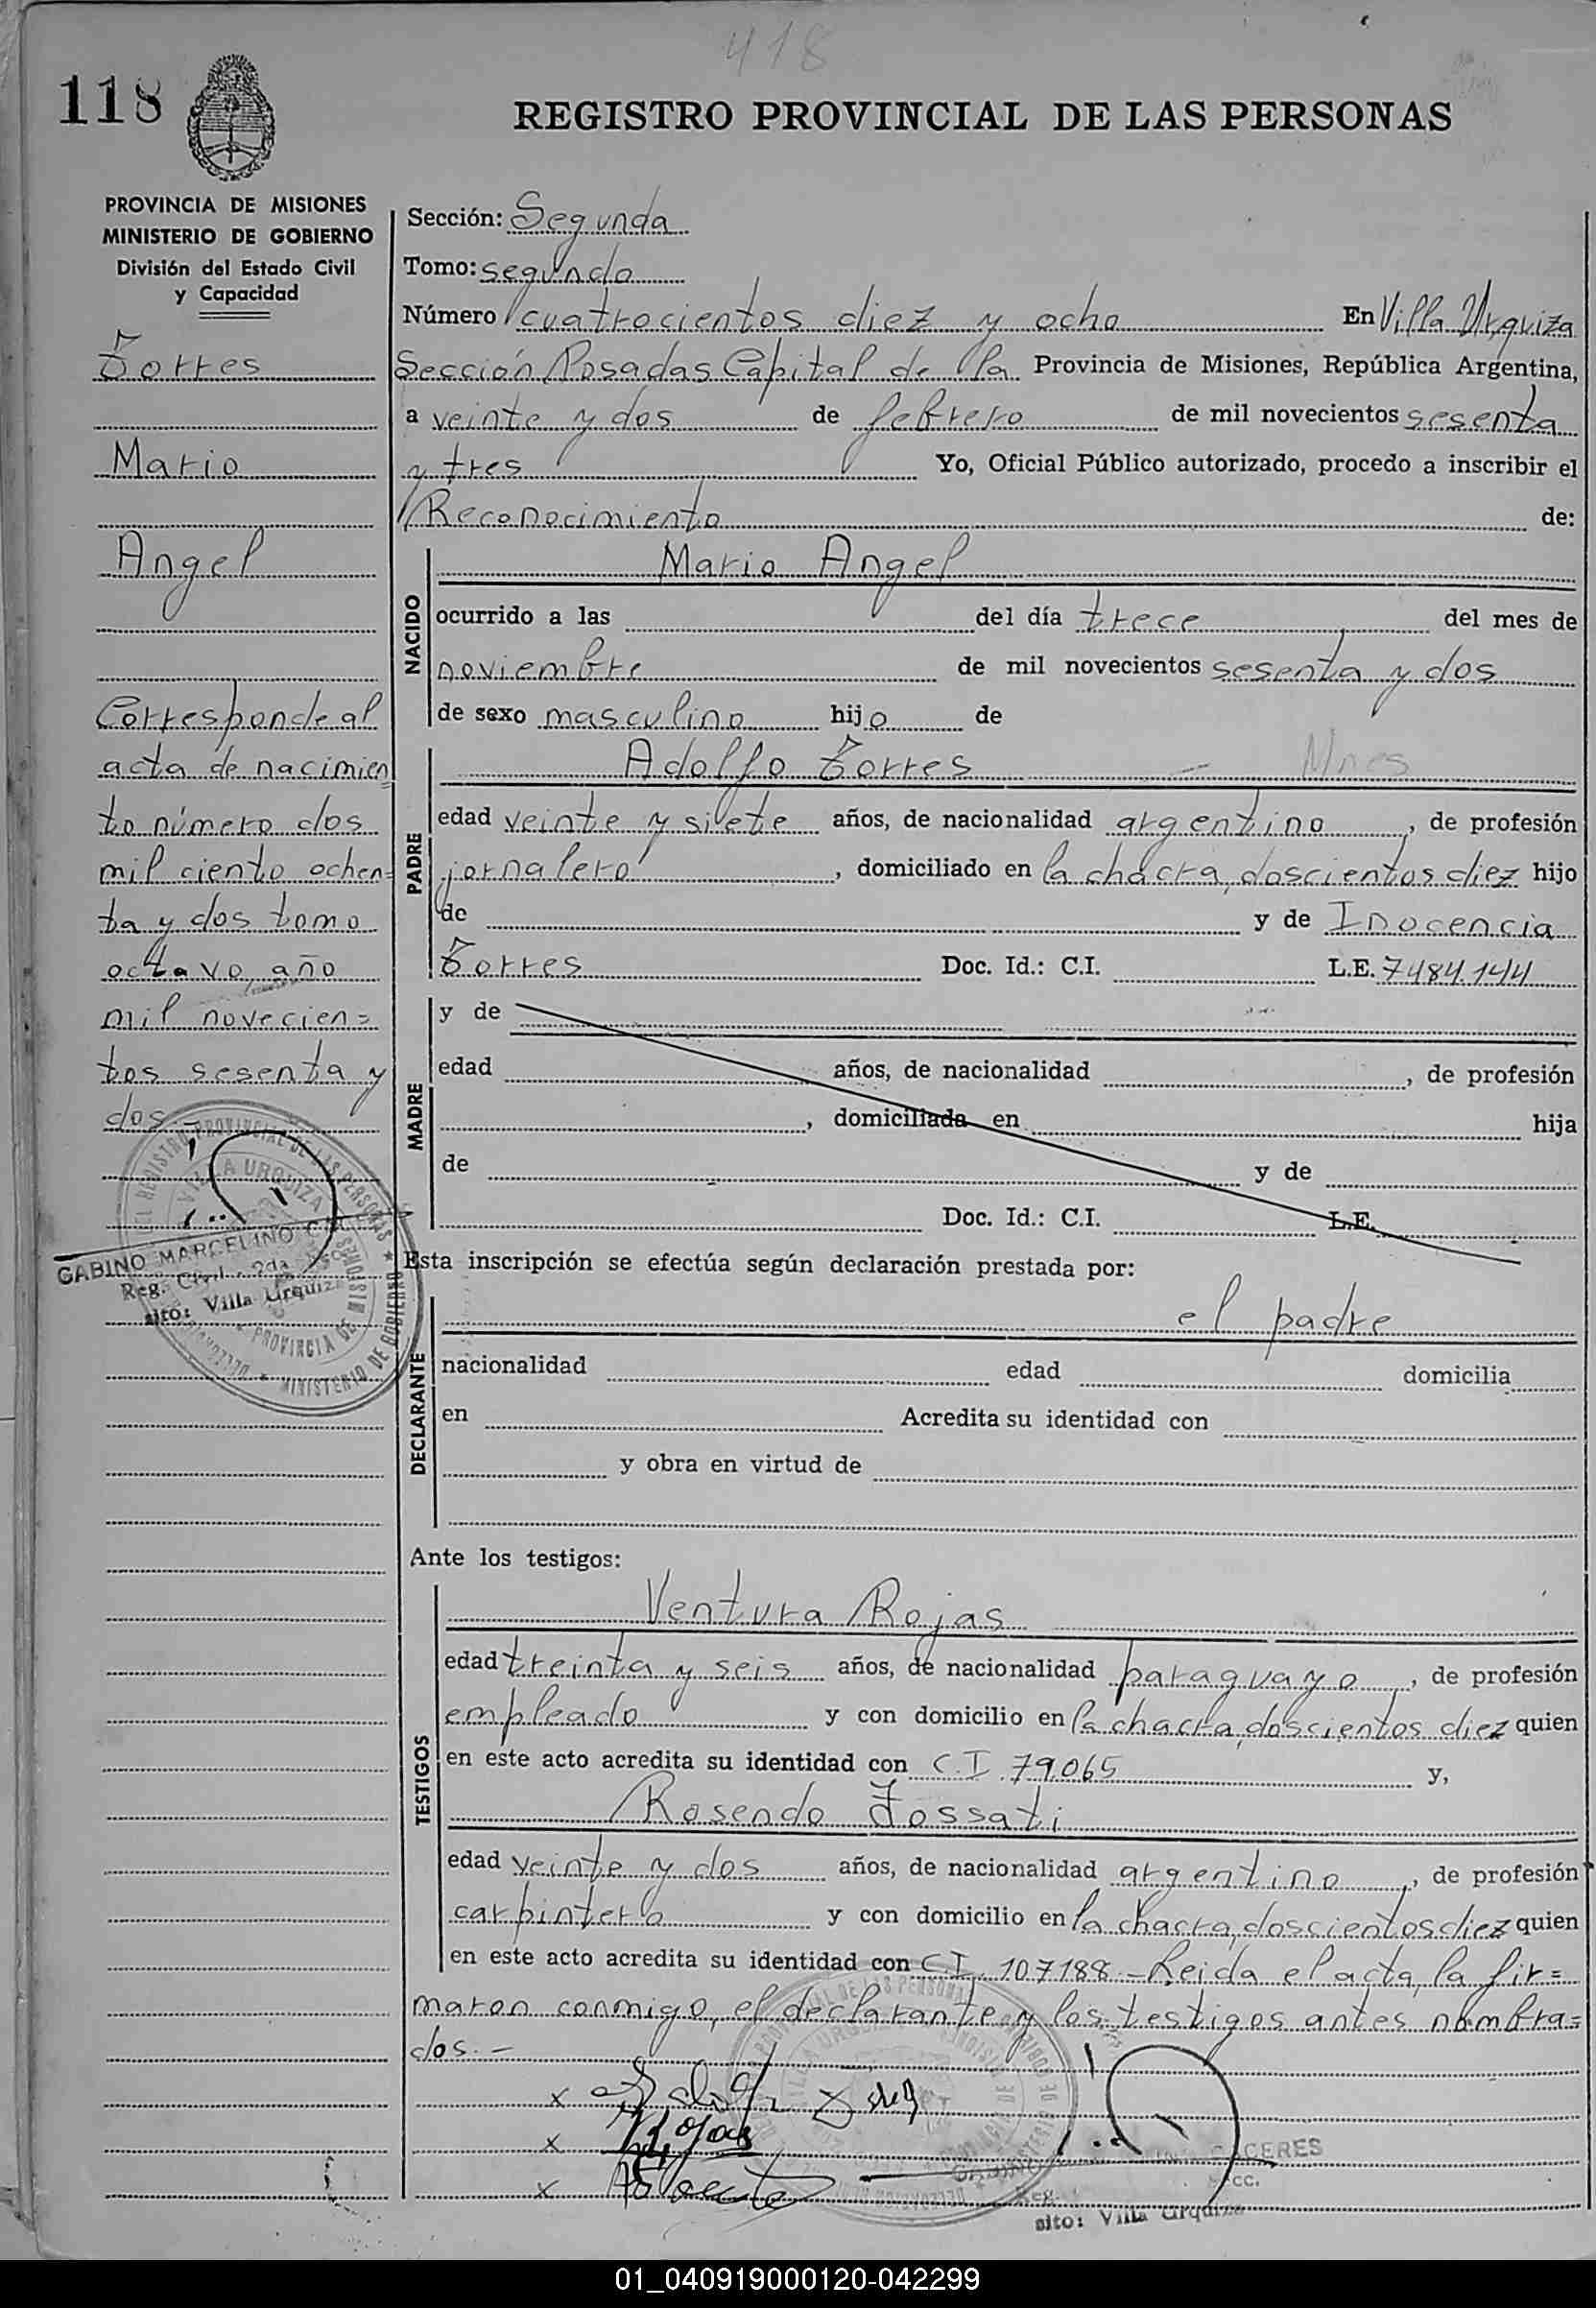 418
118
REGISTRO PROVINCIAL DE LAS PERSONAS
PROVINCIA DE MISIONES
MINISTERIO DE GOBIERNO
División del Estado Civil
y Capacidad
Torres
Mario
Angel
Corresponde al
acta de nacimien
to número dos
mil ciento ochen=
ta y dos tomo
octavo año
mil novecien=
tos sesenta y
dos.-
GABINO MARCELINO
Reg. Civil 2da
sito: Villa Urquiza
Sección: Segunda
Tomo: segundo
Número cuatrocientos diez y ocho En Villa Urquiza
Sección Posadas Capital de la Provincia de Misiones, República Argentina,
a veinte y dos de febrero de mil novecientos sesenta
y tres Yo, Oficial Público autorizado, procedo a inscribir el
Reconocimiento de:
NACIDO
Mario Angel
ocurrido a las del día trece del mes de
noviembre de mil novecientos sesenta y dos
de sexo masculino hijo de
PADRE
Adolfo Torres
edad veinte y siete años, de nacionalidad argentino, de profesión
jornalero, domiciliado en la chacra doscientos diez hijo
de y de Inocencia
Torres Doc. Id.: C.I. L.E. 7484.144
MADRE
y de
edad años, de nacionalidad , de profesión
, domiciliada en hija
de y de
Doc. Id.: C.I. L.E.
Esta inscripción se efectúa según declaración prestada por:
DECLARANTE
el padre
nacionalidad edad domicilia
en Acredita su identidad con
y obra en virtud de
Ante los testigos:
TESTIGOS
Ventura Rojas
edad treinta y seis años, de nacionalidad paraguayo, de profesión
empleado y con domicilio en la chacra doscientos diez quien
en este acto acredita su identidad con C.I. 79.065 y,
Rosendo Fossati
edad veinte y dos años, de nacionalidad argentino, de profesión
carpintero y con domicilio en la chacra doscientos diez quien
en este acto acredita su identidad con C.I. 107188.-Leida el acta, la fir=
maron conmigo, el declarante y los testigos antes nombra=
dos.-
x
x Rojas
x
CACERES
Reg.
sito: Villa Urquiza
01_040919000120-042299